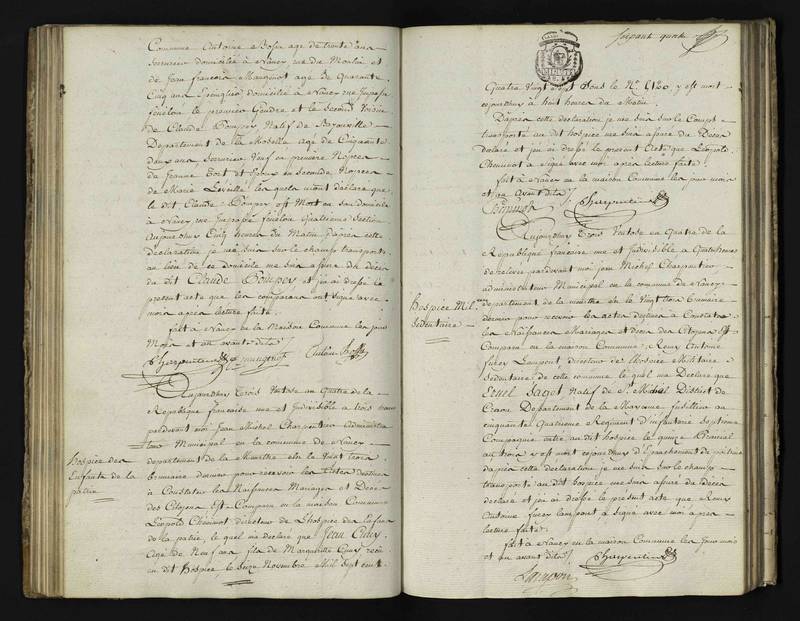 Commune Antoine age de trente ans
Serrurier domicilié a Nancy rue du Moulin et
de Jean francois Mauginot age de Quarante
Cinq ans domicilié a Nancy rue
fénélon le premier Gendre et le Second Voisin
de Claude Pompey Natif de
Departement de la Moselle age de Cinquante
ans Serrurier Veuf en premiere Nopces
de Jeanne et Epoux en Seconde Nopces
de Marie les quels m'ont déclaré que
le dit Claude Pompey est Mort en Son domicile
a Nancy rue fénélon quatrieme Section
Aujourdhuy Cinq heures du Matin d'après cette
declaration je me Suis Sur le champ transporté
au lieu de ce domicile me Suis assuré du décès
du dit Claude Pompey et j'ai dressé le
present acte que les comparans ont Signé avec
moi après lecture faite
fait a Nancy en la Maison Commune les jour
Mois et an avant dits
Charpentier Mauginot
Aujourdhuy Trois Ventose an Quatre de la
Republique francaise une et Indivisible a trois heures
pardevant moi Jean Michel Charpentier administra
teur Municipal en la commune de Nancy
departement de la Meurthe elu le Vingt trois
Brumaire dernier pour recevoir les Actes destinés
a Constater les Naissances Mariages et Decès
des Citoyens Est Comparu en la maison Commune
Léopold Chenimot directeur de L'hospice des Enfans
de la patrie, le quel ma déclaré que Jean
Agé de Neuf ans fils de Marguerite reçu
au dit Hospice, le Seize Novembre Mil Sept cent
Hospice des
Enfants de la
patrie
Quatre Vingt Sept Sous le No. y est mort
aujourdhuy a huit heures du Matin
D'après cette déclaration je me suis Sur le Champ
transporté au dit hospice me suis assuré du Décès
déclaré et j'ai dressé le présent Acte que Léopold
Chenimot a Signé avec moi après lecture faite
fait a Nancy en la maison Commune les jour mois
et an avant dits
Charpentier
Aujourdhuy Trois Ventose an Quatre de la
République française une et Indivisible a Quatre heures
de relevée pardevant moi jean Michel Charpentier
administrateur Municipal en la commune de Nancy
departement de la meurthe elu le Vingt trois Brumaire
dernier pour recevoir les actes destinés a Constater
les Naissances Mariages et Decès des Citoyens Est
Comparu en la maison Commune, Remy Antoine
directeur de l'hospice Militaire
Sédentaire de cette commune le quel ma Déclaré que
Sagot Natif de St. Michel District de
Craon Departement de la Mayenne fusillier au
cinquante Quatrieme Regiment d'infanterie Septieme
Compagnie entré au dit hospice le quinze Prairial
an trois y est mort aujourdhuy d'Epanchement de poitrine
d'après cette déclaration je me suis Sur le champ
transporté au dit hospice me suis assuré du Décès
déclaré et j'ai dressé le présent acte que Remy
Antoine a Signé avec moi après
lecture faite
fait a Nancy en la maison Commune les jour mois
et an avant dits
Charpentier
Hospice Mil.re
Sédentaire